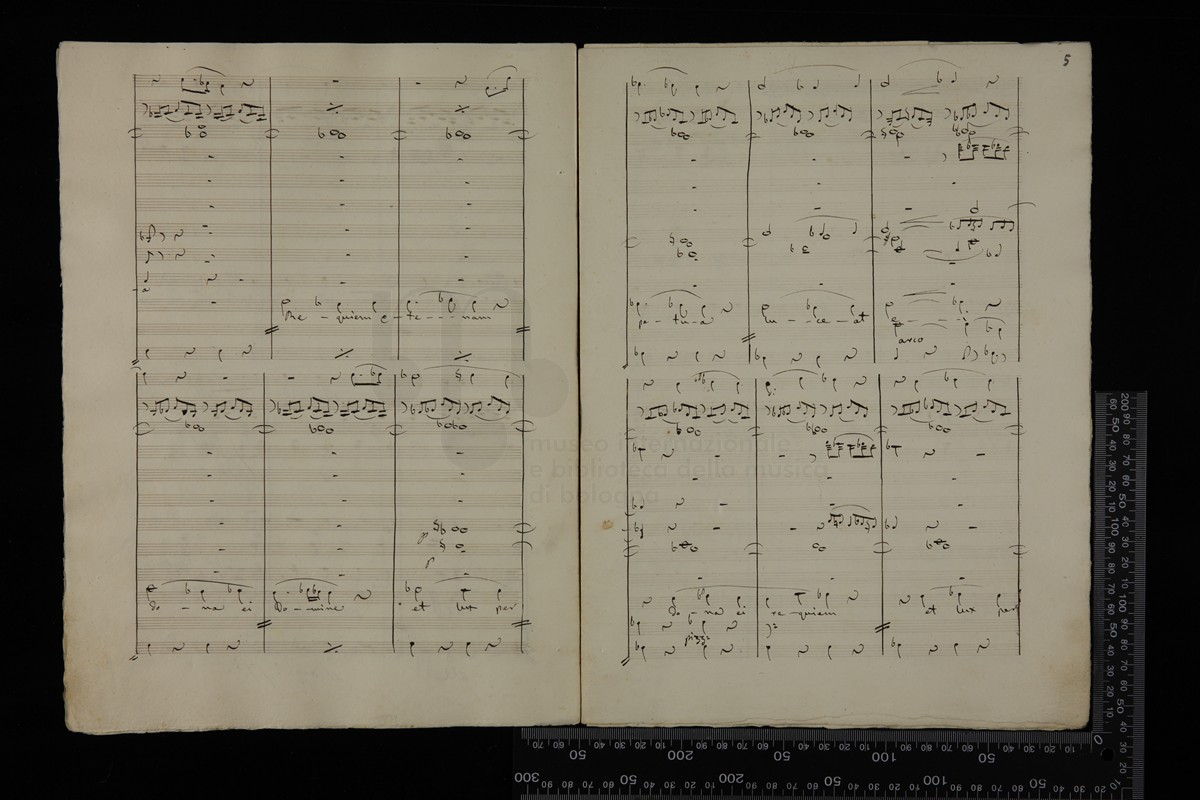 Re - quiem e - te - - - nam
do - na ei Do - mine et lux per
5
pe - tu - a lu - - ce - at e - - - i
arco
do - na ei re - quiem et lux per
pizz:
museo internazionale
e biblioteca della musica
di bologna